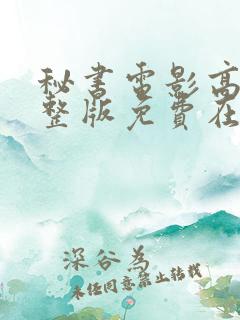 秘书雷影高
整版免费在
深谷为
未经同意禁止转载